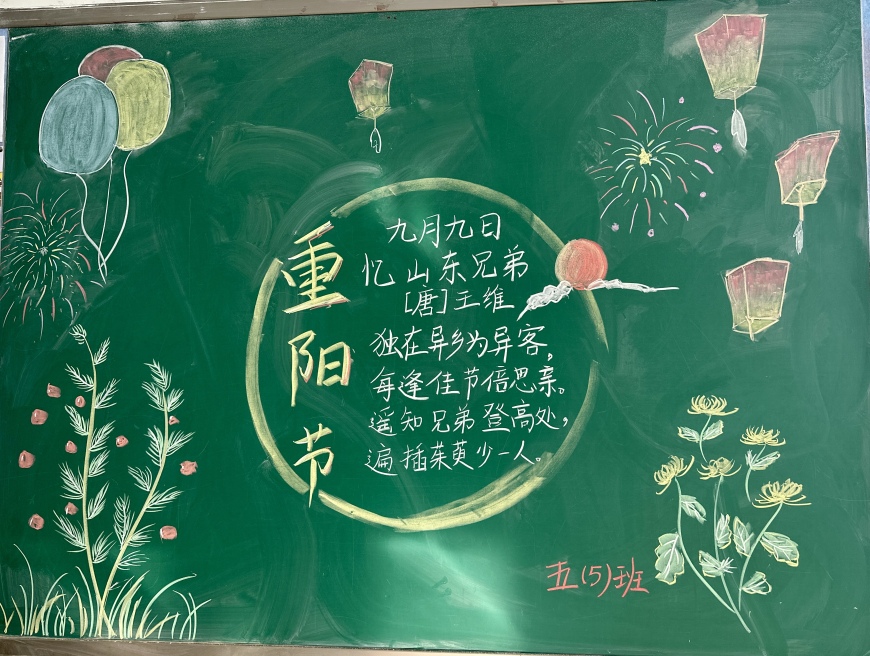 重阳节
九月九日
忆山东兄弟
[唐]王维
独在异乡为异客,
每逢佳节倍思亲。
遥知兄弟登高处,
遍插茱萸少一人。
五(5)班